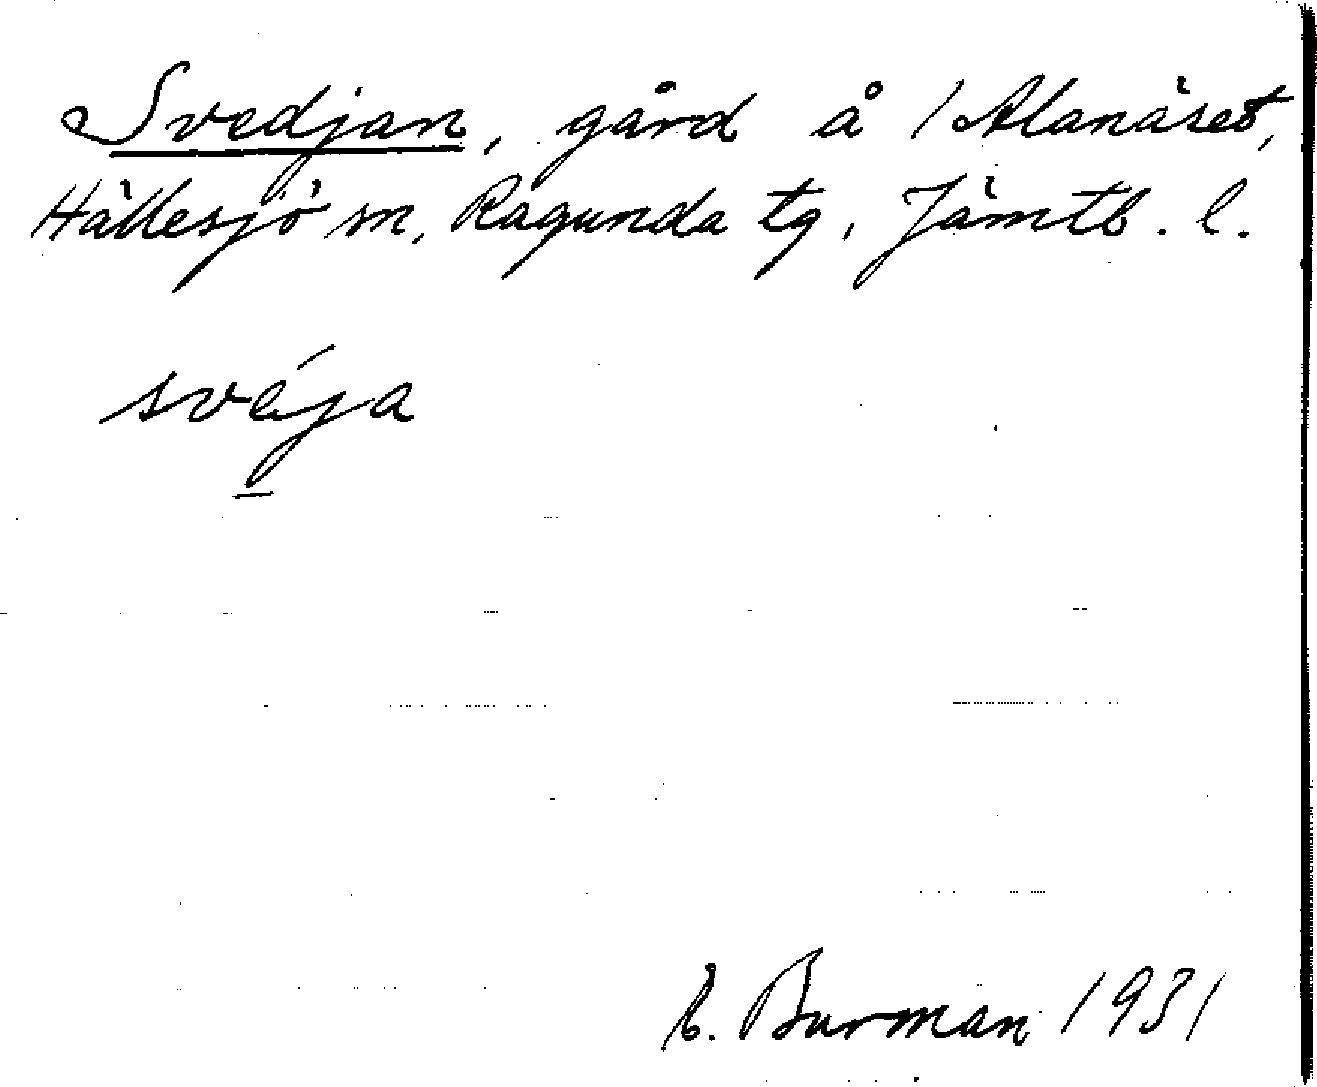 Svedjan, gård å 1 Alanäset,
Hällesjö sn, Ragunda tg, Jämtl. l.
svéja
E. Burman 1931